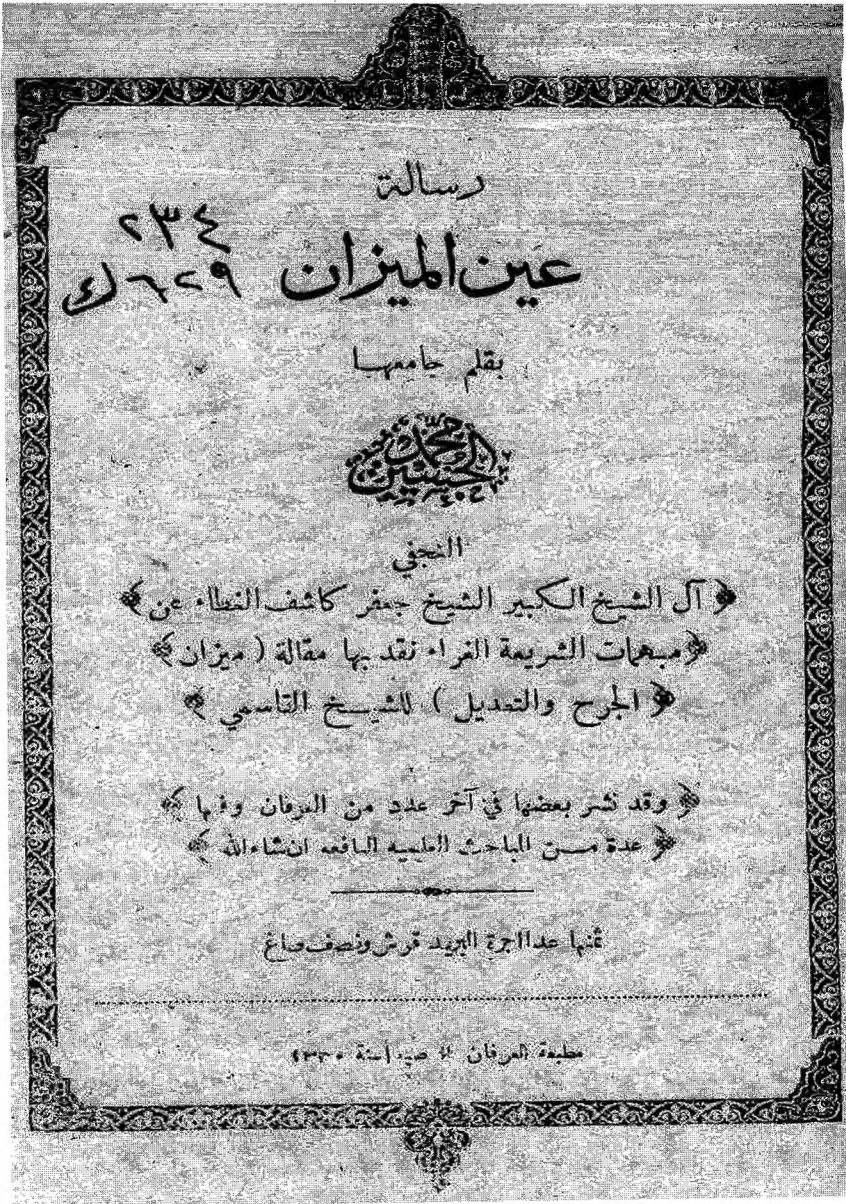 رسالة
عين الميزان
٢٣٤
٦٢٩ ك
بقلم جامعها
محمد الحسين
النجفي
﴿ آل الشيخ الكبير الشيخ جعفر كاشف الغطاء عن ﴾
﴿ مبهمات الشريعة الغراء نقد بها مقالة ( ميزان ﴾
﴿ الجرح والتعديل ) للشيخ القاسمي ﴾
﴿ وقد نشر بعضها في آخر عدد من العرفان وفيها ﴾
﴿ عدة من المباحث العلمية النافعه انشاءالله ﴾
ثمنها عدا اجرة البريد قرش ونصف صاغ
مطبعة العرفان * صيدا سنة ١٣٣٠